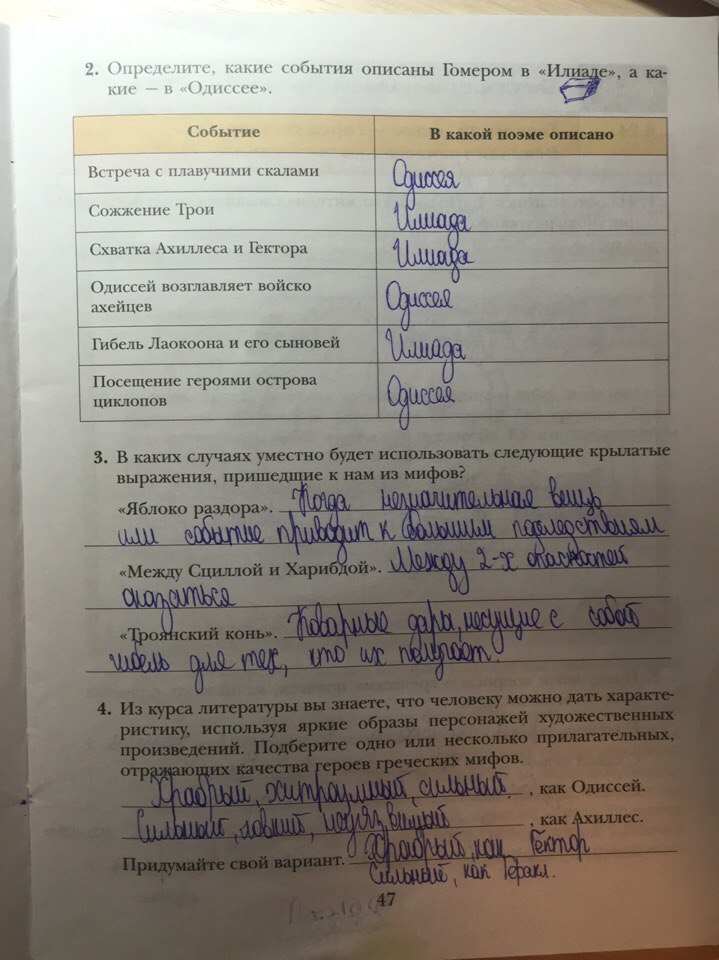 2. Определите, какие события описаны Гомером в «Илиаде», а ка-
кие — в «Одиссее».
Событие В какой поэме описано
Встреча с плавучими скалами Одиссея
Сожжение Трои Илиада
Схватка Ахиллеса и Гектора Илиада
Одиссей возглавляет войско
ахейцев Одиссея
Гибель Лаокоона и его сыновей Илиада
Посещение героями острова
циклопов Одиссея
3. В каких случаях уместно будет использовать следующие крылатые
выражения, пришедшие к нам из мифов?
«Яблоко раздора». Когда незначительная вещь
или событие приводит к большим последствиям
«Между Сциллой и Харибдой». Между 2-х опасностей
оказаться
«Троянский конь». Коварные дары, несущие с собой
гибель для тех, кто их получает.
4. Из курса литературы вы знаете, что человеку можно дать характе-
ристику, используя яркие образы персонажей художественных
произведений. Подберите одно или несколько прилагательных,
отражающих качества героев греческих мифов.
Храбрый, хитроумный, сильный , как Одиссей.
Сильный, ловкий, неуязвимый , как Ахиллес.
Придумайте свой вариант. Храбрый, как Гектор
Сильный, как Геракл.
47